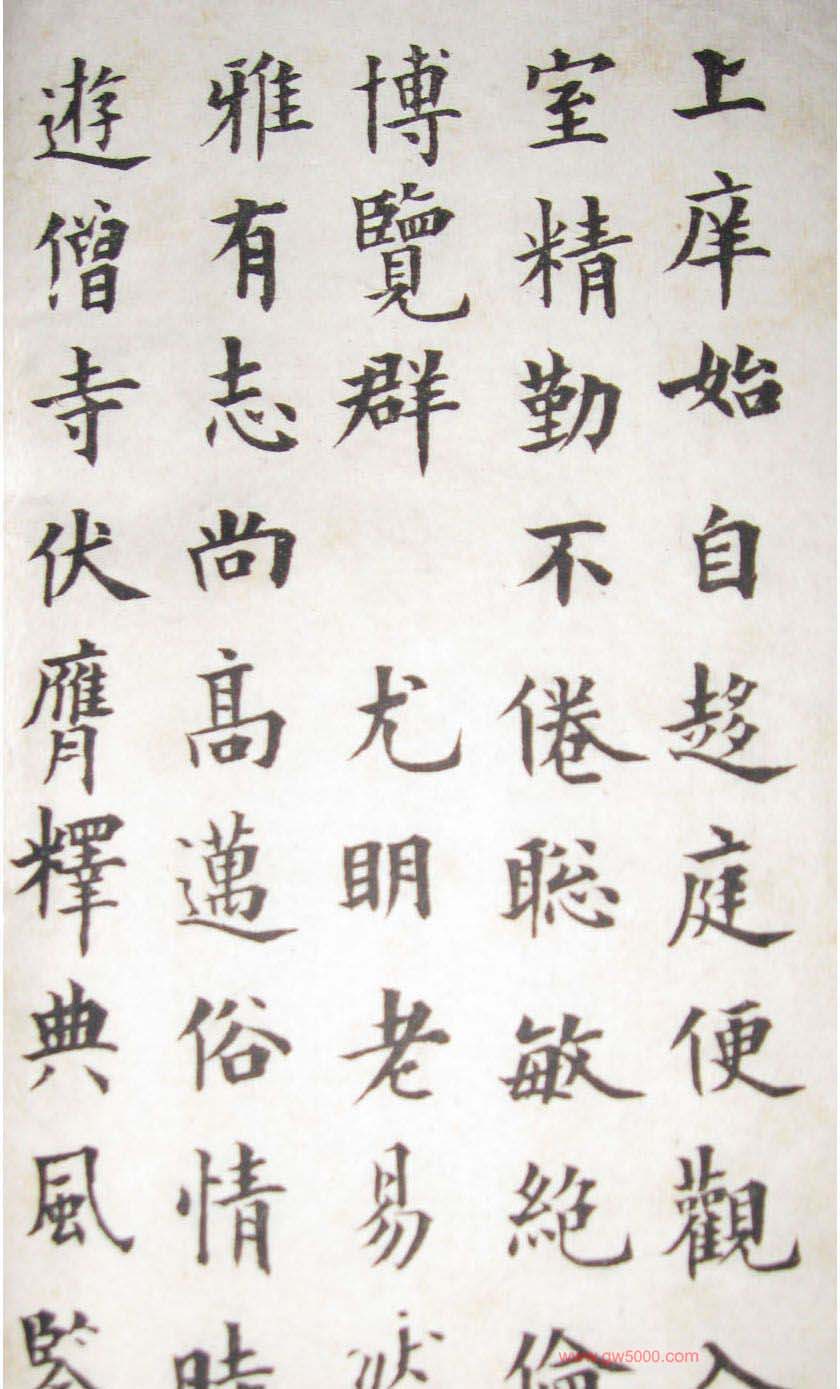 上庠始自趍庭便觀入
室精勤不倦聡敏絶倫
博覽群尤明老易
雅有志尚高邁俗情時
遊僧寺伏膺釋典風
www.gw5000.com